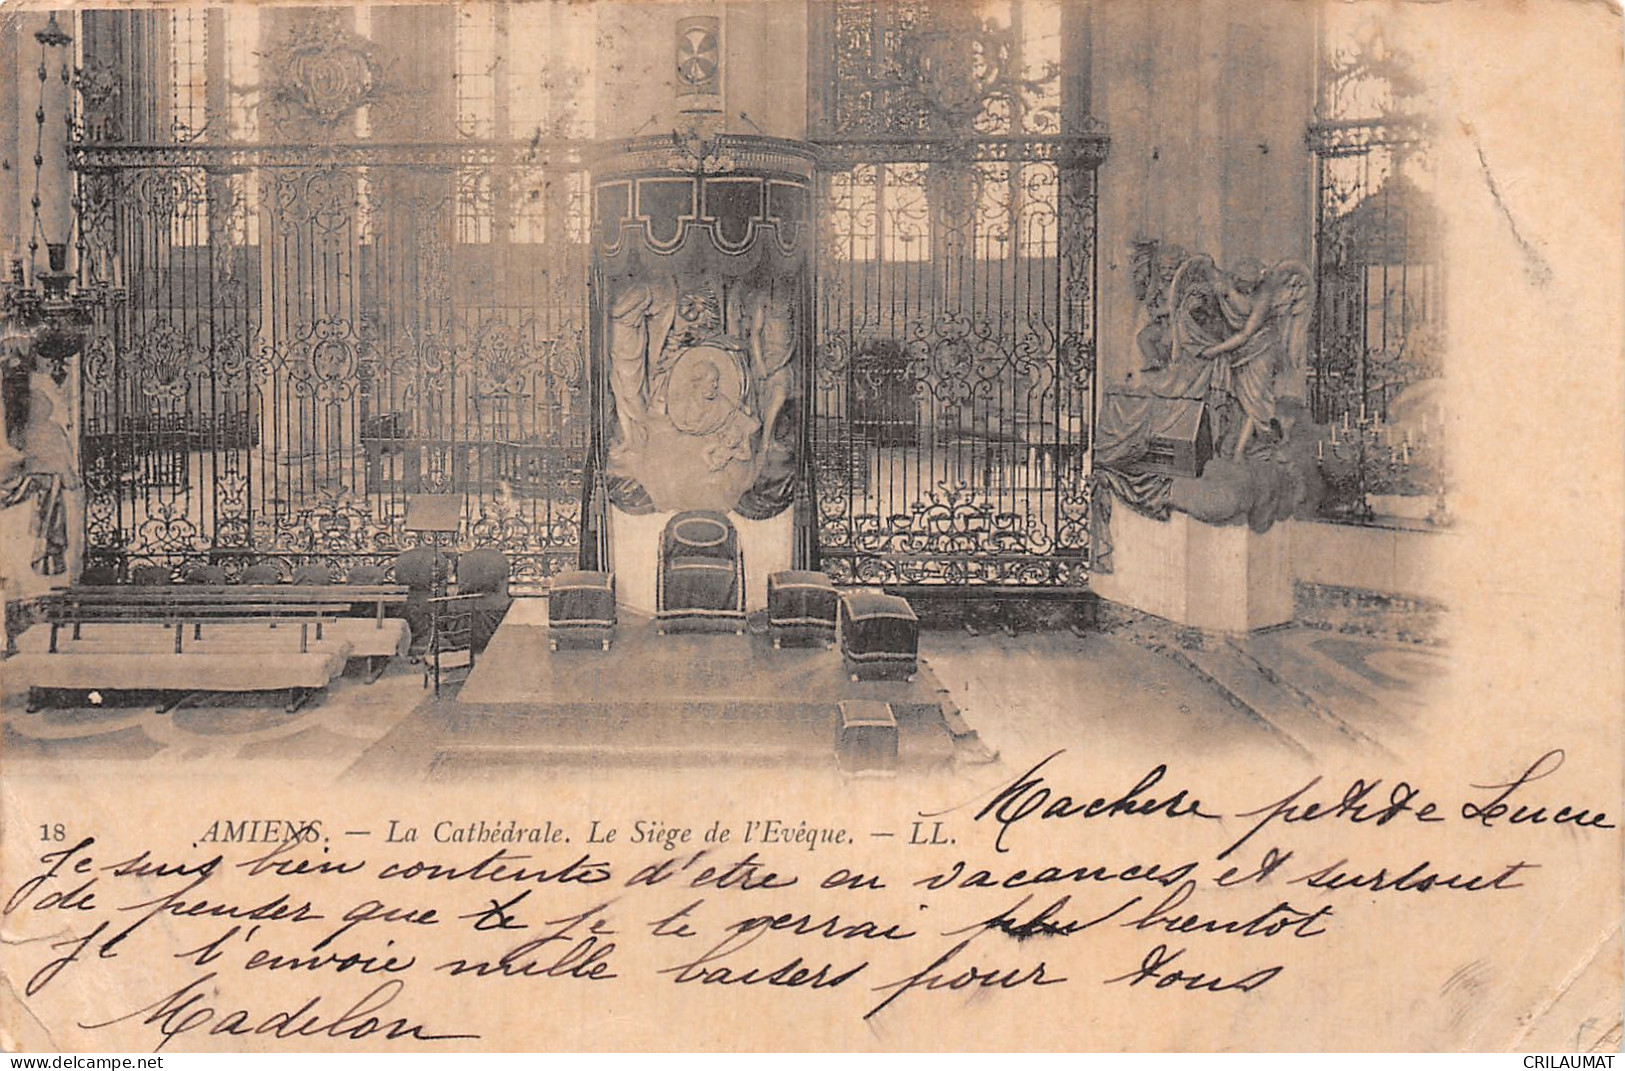 18 AMIENS. — La Cathédrale. Le Siège de l'Evêque. — LL.
Ma chere petite Lucie
Je suis bien contente d'etre en vacances et surtout
de penser que je te verrai bientot
Je t'envoie mille baisers pour tous
Madelon
CRILAUMAT